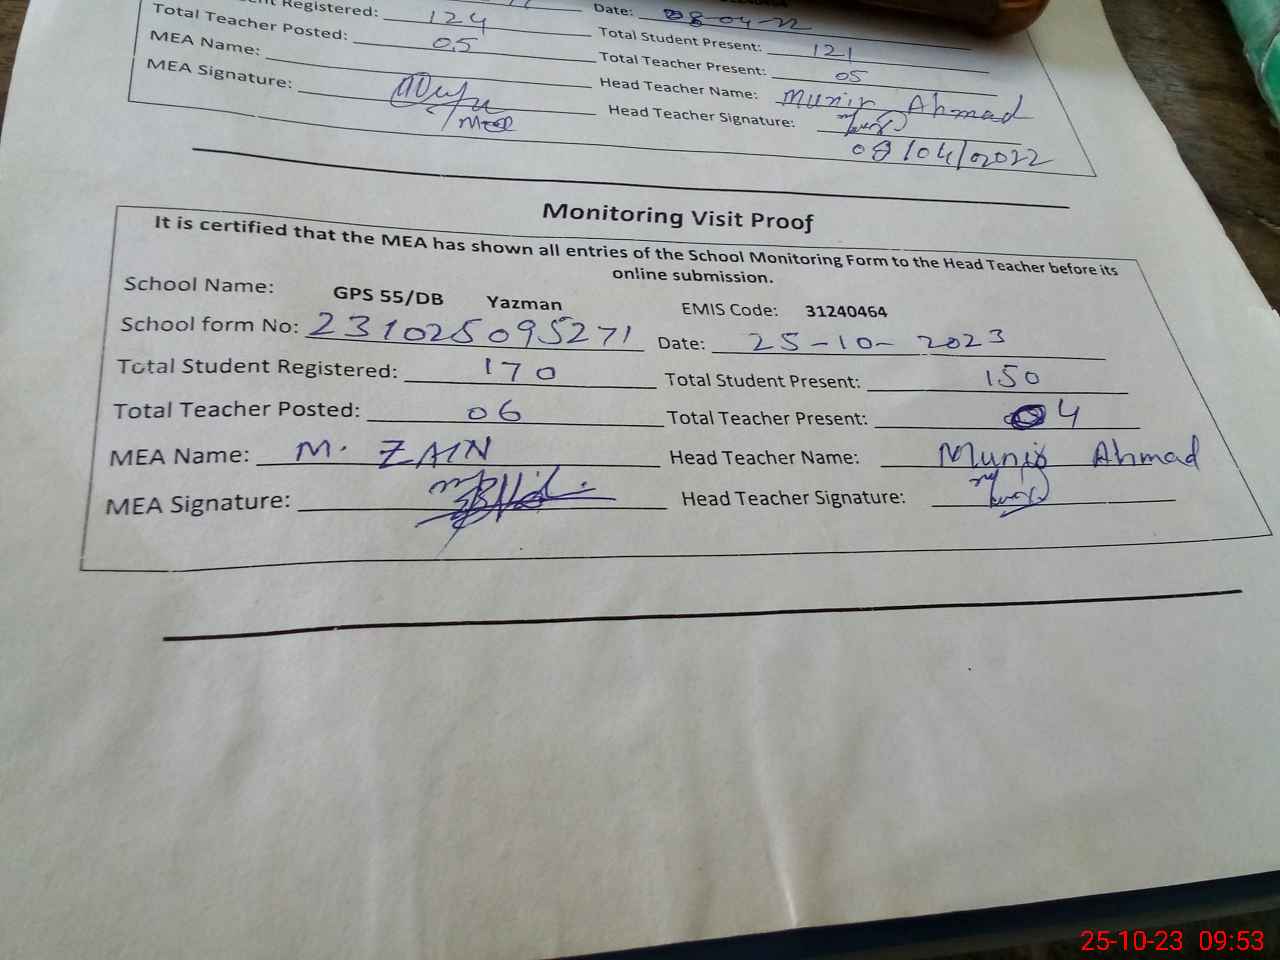 Registered: 124 Date: 08-04-22
Total Teacher Posted: 05 Total Student Present: 121
MEA Name: Total Teacher Present: 05
MEA Signature: Head Teacher Name: Munir Ahmad
Head Teacher Signature:
08/04/2022
Monitoring Visit Proof
It is certified that the MEA has shown all entries of the School Monitoring Form to the Head Teacher before its
online submission.
School Name: GPS 55/DB Yazman EMIS Code: 31240464
School form No: 231025095271 Date: 25-10-2023
Total Student Registered: 170 Total Student Present: 150
Total Teacher Posted: 06 Total Teacher Present: 04
MEA Name: M. ZAIN Head Teacher Name: Munir Ahmad
MEA Signature: Head Teacher Signature:
25-10-23 09:53